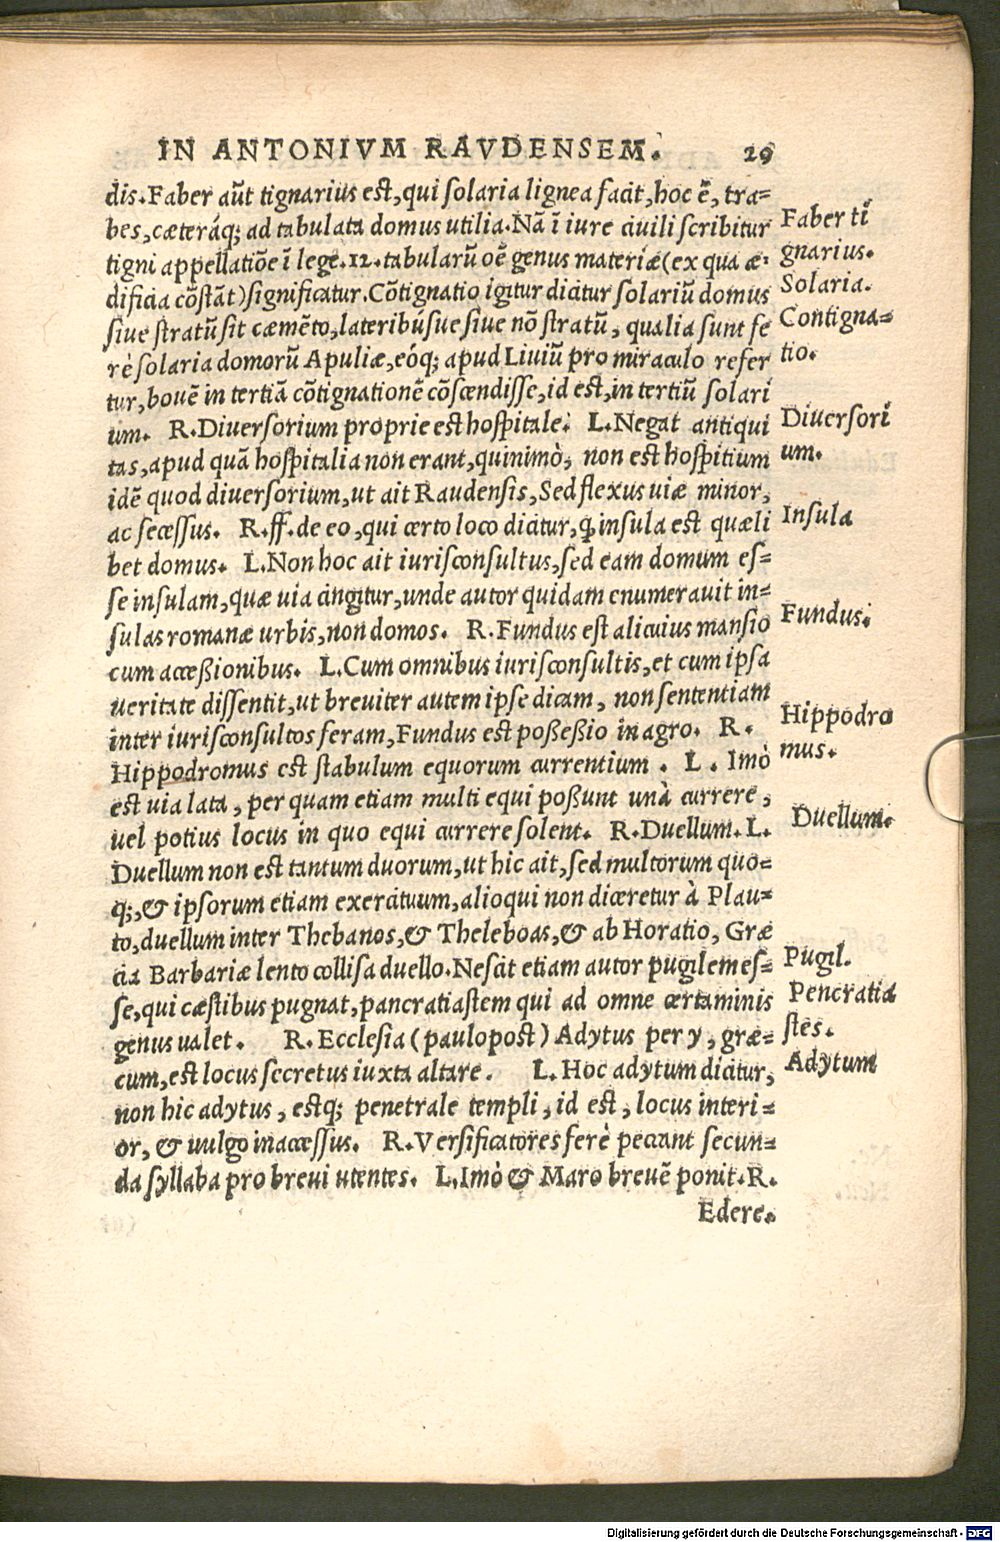 IN ANTONIVM RAVDENSEM. 29
dis. Faber aūt tignarius est, qui solaria lignea facit, hoc ē, tra-
bes, cæteráq; ad tabulata domus utilia. Nā ī iure ciuili scribitur
tigni appellatiōe ī lege .12. tabularū oē genus materiæ (ex qua æ-
dificia cōstāt) significatur. Cōtignatio igitur dicitur solariū domus
siue stratū sit cæmēto, lateribúsue siue nō stratū, qualia sunt fe
rè solaria domorū Apuliæ, eóq; apud Liuiū pro miraculo refer
tur, bouē in tertiā cōtignationē cōscendisse, id est, in tertiū solari
um. R. Diuersorium proprie est hospitale. L. Negat antiqui
tas, apud quā hospitalia non erant, quinimò, non est hospitium
idē quod diuersorium, ut ait Raudensis, Sed flexus uiæ minor,
ac secessus. R. ff. de eo, qui certo loco dicitur, ꝙ insula est quæli
bet domus. L. Non hoc ait iurisconsultus, sed eam domum es-
se insulam, quæ uia cingitur, unde autor quidam enumerauit in-
sulas romanæ urbis, non domos. R. Fundus est alicuius mansio
cum accessionibus. L. Cum omnibus iurisconsultis, et cum ipsa
ueritate dissentit, ut breuiter autem ipse dicam, non sententiam
inter iurisconsultos feram, Fundus est possessio in agro. R.
Hippodromus est stabulum equorum currentium. L. Imò
est uia lata, per quam etiam multi equi possunt unà currere,
uel potius locus in quo equi currere solent. R. Duellum. L.
Duellum non est tantum duorum, ut hic ait, sed multorum quo-
q;, & ipsorum etiam exercituum, alioqui non diceretur à Plau-
to, duellum inter Thebanos, & Theleboas, & ab Horatio, Græ
cia Barbariæ lento collisa duello. Nescit etiam autor pugilem es-
se, qui cæstibus pugnat, pancratiastem qui ad omne certaminis
genus ualet. R. Ecclesia (paulopost) Adytus per y, græ-
cum, est locus secretus iuxta altare. L. Hoc adytum dicitur,
non hic adytus, estq; penetrale templi, id est, locus interi-
or, & uulgo inaccessus. R. Versificatores ferè peccant secun-
da syllaba pro breui utentes. L. Imò & Maro breuē ponit. R.
Edere.
Faber ti
gnarius.
Solaria.
Contigna-
tio.
Diuersori
um.
Insula
Fundus.
Hippodro
mus.
Duellum.
Pugil.
Pencratia
stes.
Adytum
Digitalisierung gefördert durch die Deutsche Forschungsgemeinschaft - DFG